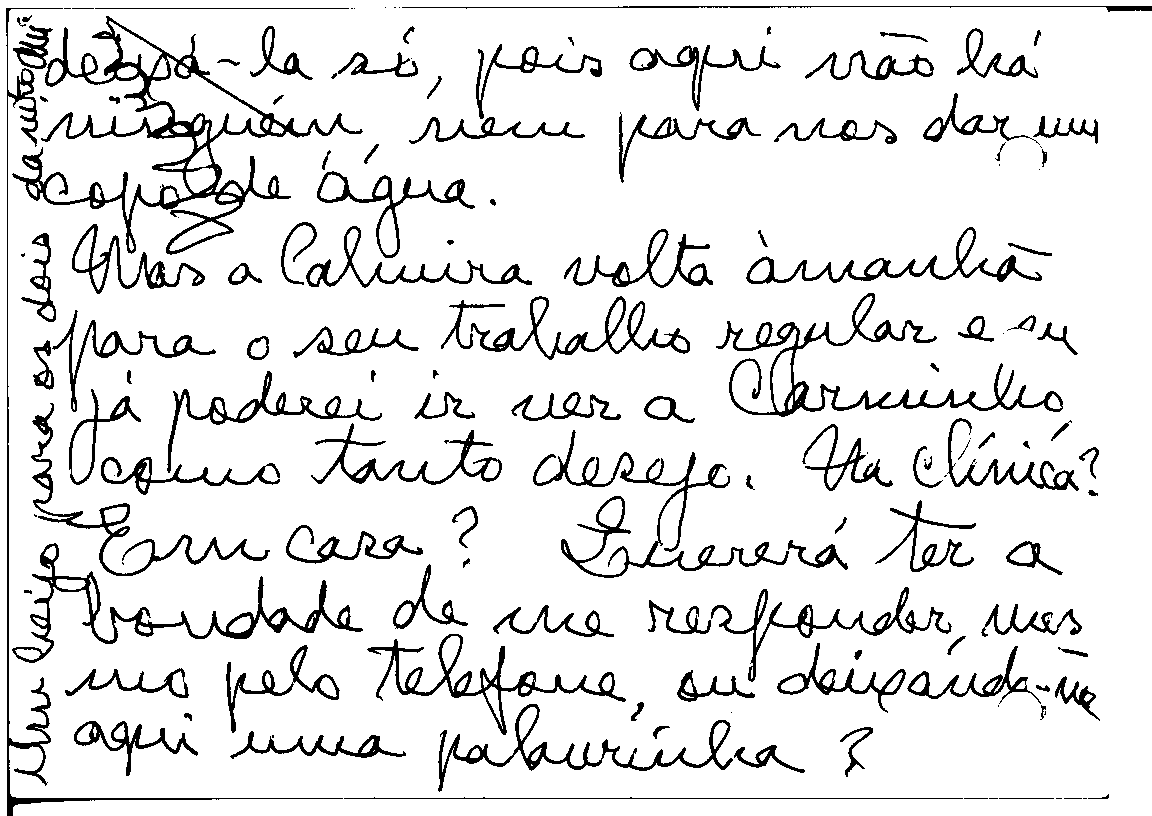 deixá-la só, pois aqui não há
ninguém, nem para nos dar um
copo de água.
Mas a Palmira volta àmanhã
para o seu trabalho regular e eu
já poderei ir ver a Carminho,
como tanto desejo. Na clínica?
Em casa? Quererá ter a
bondade de me responder, mes
mo pelo telefone, ou deixándo-me
aqui uma palavrinha?
Um beijo para os dois da